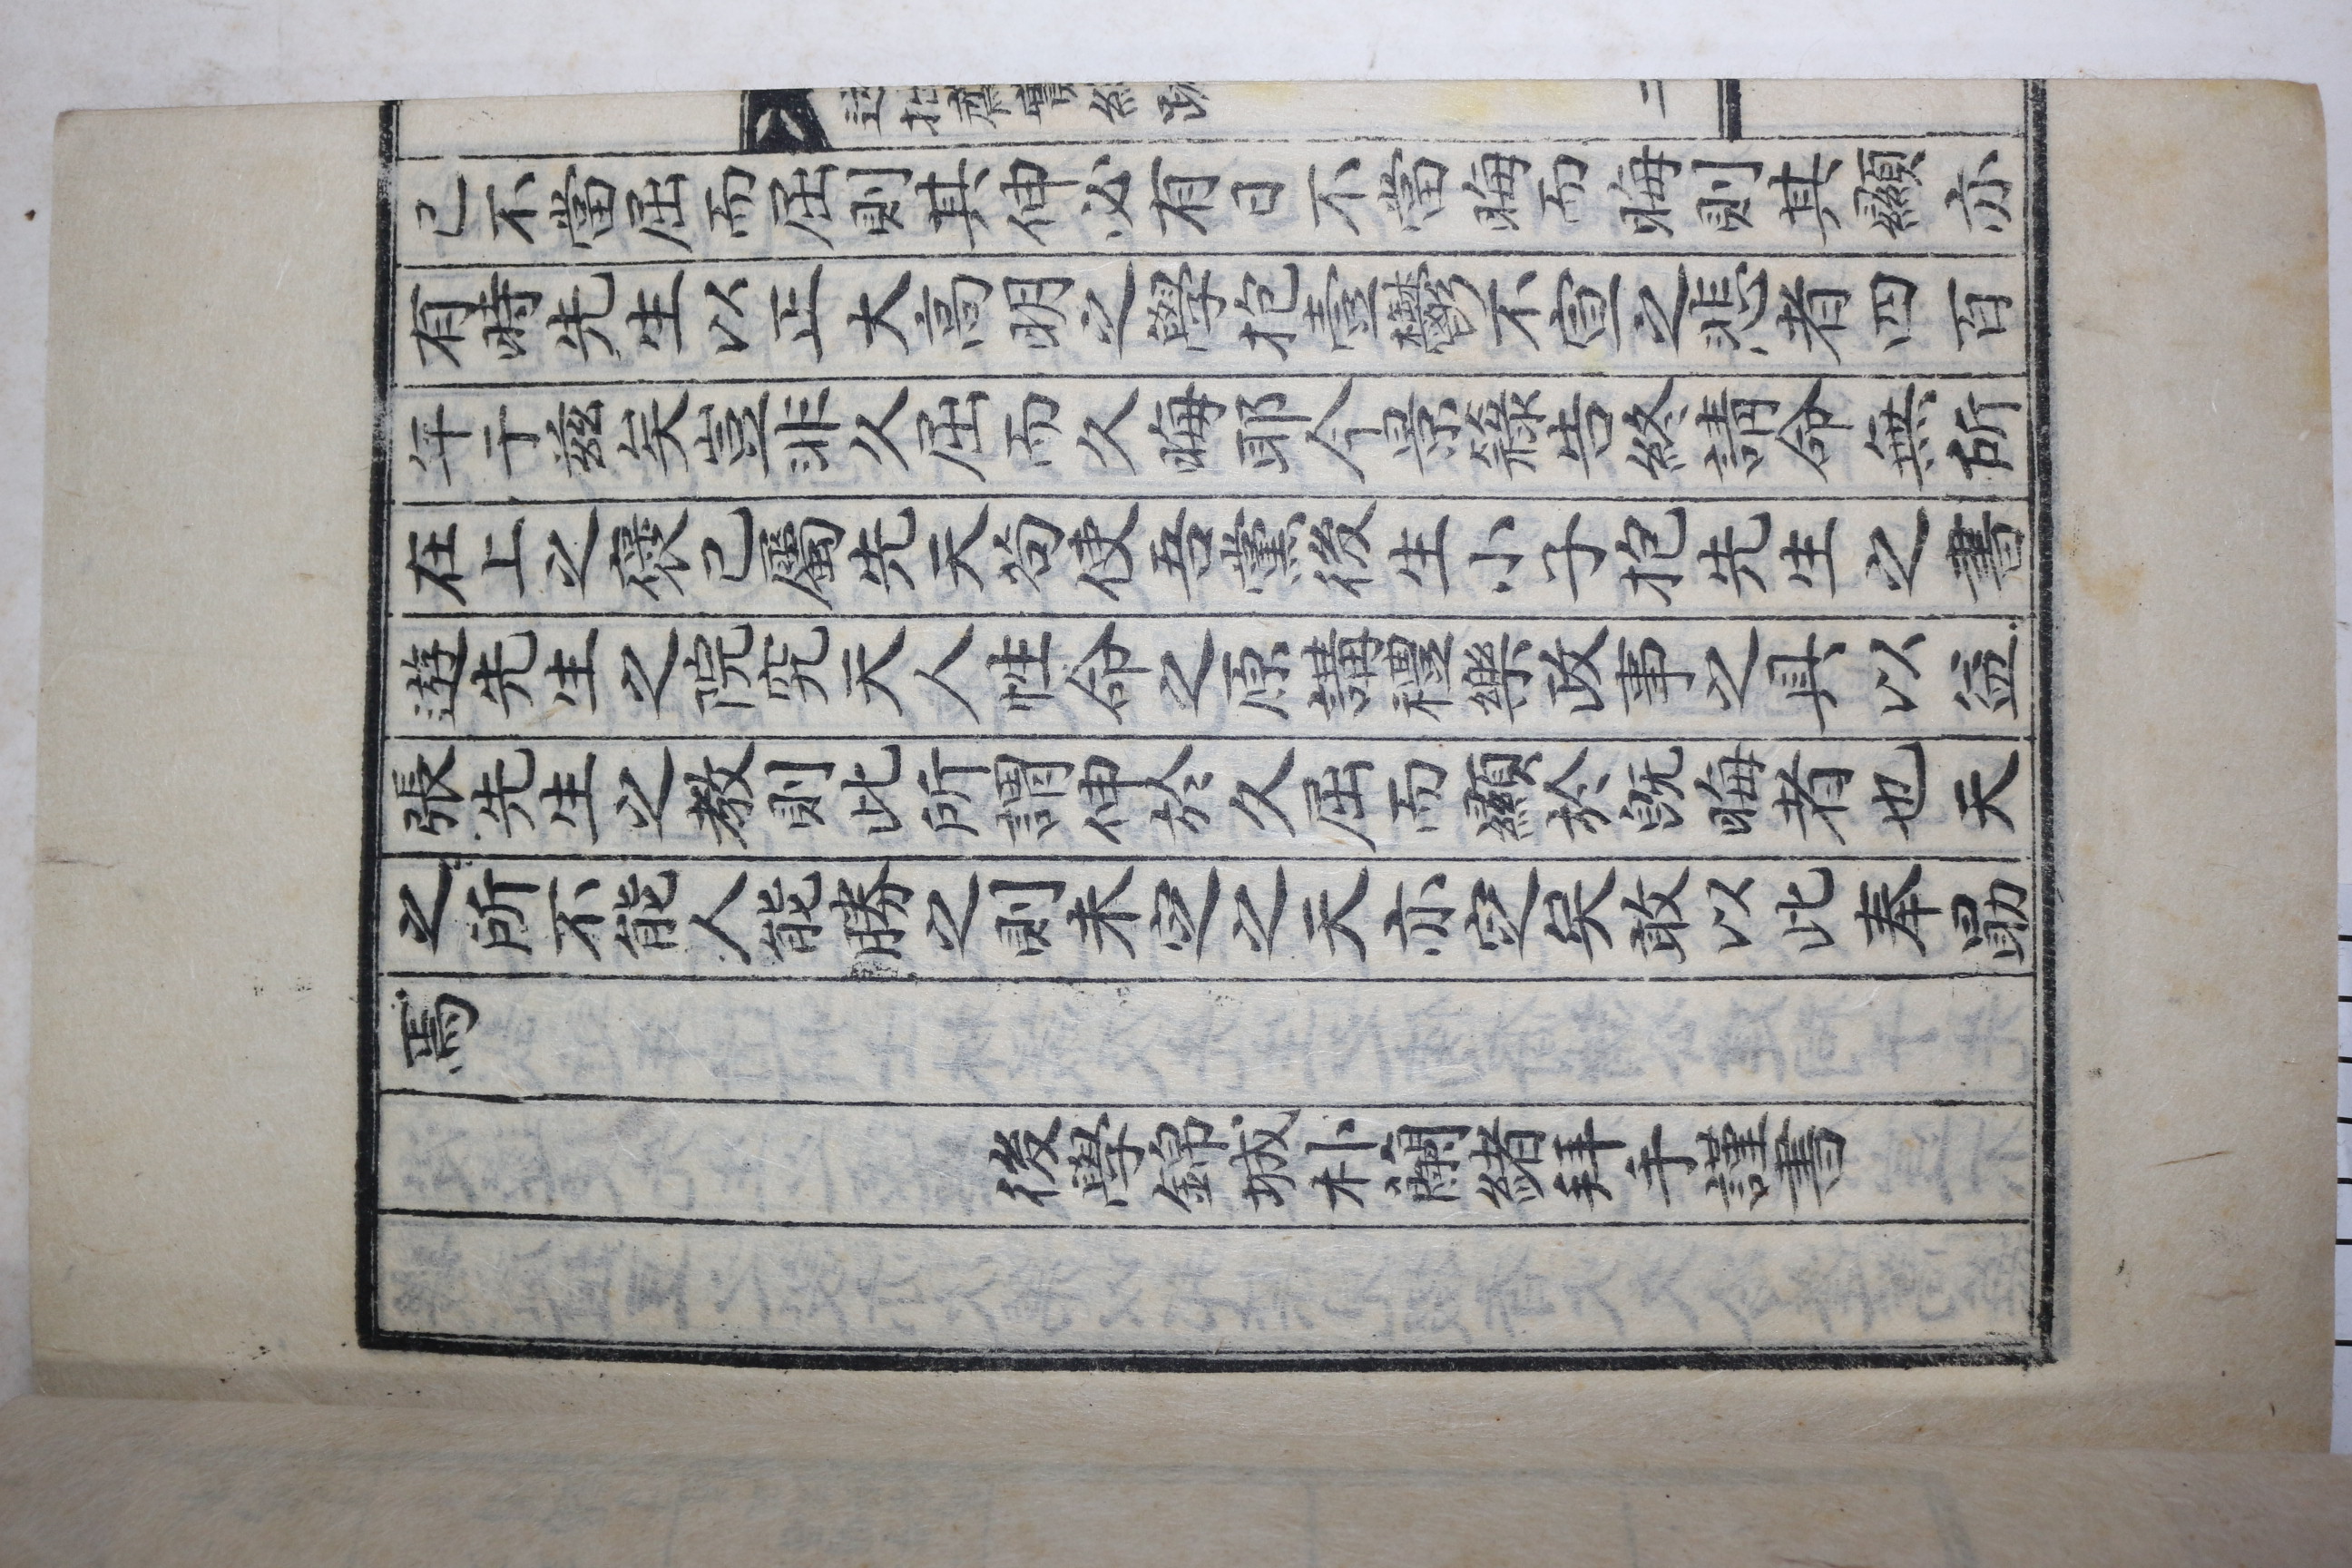 已不當屈而屈則其伸必有日不當晦而晦則其顯亦
有時先生以正大高明之學抱壹鬱不宣之悲者四百
年于玆矣豈非久屈而久晦耶今景籙告終請命無所
在上之褒已屬先天苟使吾黨後生小子抱先生之書
遊先生之院究天人性命之原講禮樂政事之具以益
張先生之教則此所謂伸於久屈而顯於旣晦者也天
之所不能人能勝之則未定之天亦定矣敢以此奉勖
焉
後學錦城朴蘭緖拜手謹書
二